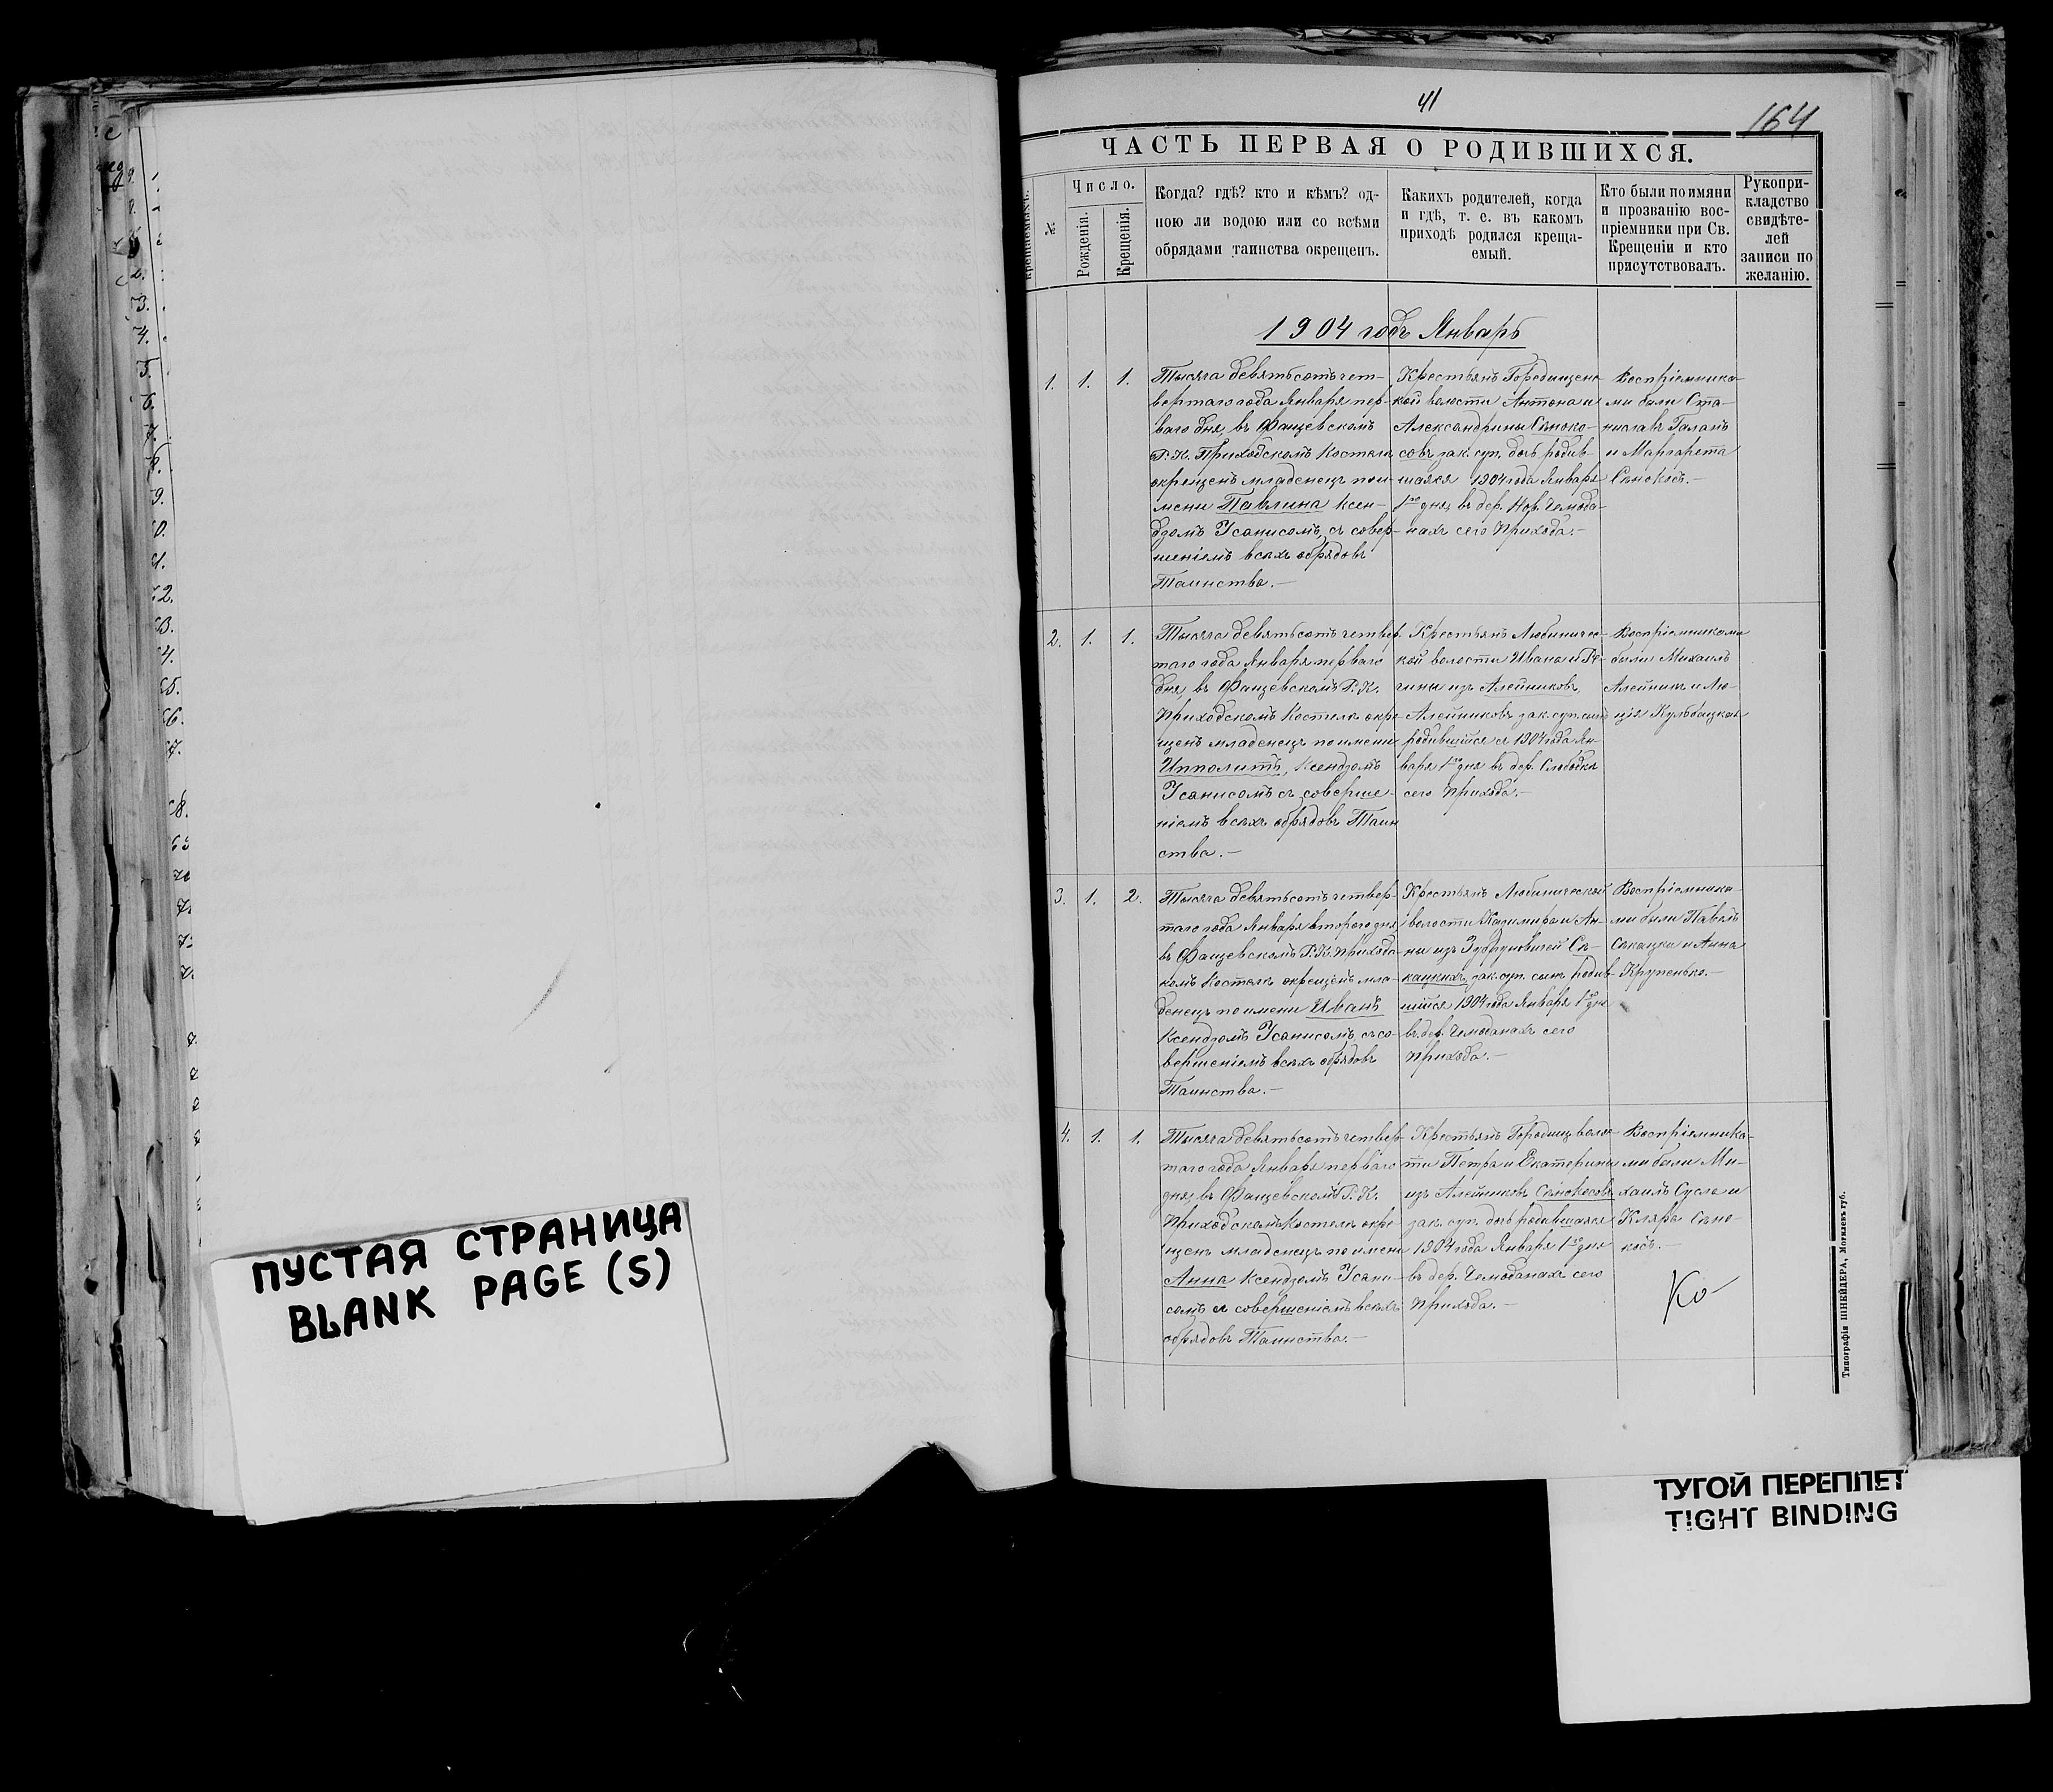 41
164
ЧАСТЬ ПЕРВАЯ О РОДИВШИХСЯ.
№
Число.
Рожденія.
Крещенія.
Когда? гдѣ? кто и кѣмъ? од-
ною ли водою или со всѣми
обрядами таинства окрещенъ.
Какихъ родителей, когда
и гдѣ, т. е. въ какомъ
приходѣ родился креща-
емый.
Кто были по имяни
и прозванію вос-
пріемники при Св.
Крещеніи и кто
присутствовалъ.
Рукопри-
кладство
свидѣте-
лей
записи по
желанію.
1904 годъ Январь
1. 1. 1.
Тысяча девятьсотъ чет-
вертаго года Января пер-
ваго дня, въ Фащевскомъ
Р. К. Приходскомъ Костелѣ
окрещенъ младенецъ по и-
мени Павлина Ксен-
дзомъ Усанисомъ, съ совер-
шеніемъ всѣхъ обрядовъ
Таинства.—
Крестьянъ Городищенс-
кой волости Антона и
Александрины Сѣноко-
совъ зак. суп. дочь родив-
шаяся 1904 года Января
1го дня, въ дер. Нов. Чемода-
нахъ сего Прихода.—
Воспріемника-
ми были Ста-
ниславъ Галанъ
и Маргарета
Сѣнокосъ.—
2. 1. 1.
Тысяча девятьсотъ четвер-
таго года Января перваго
дня, въ Фащевскомъ Р. К.
Приходскомъ Костелѣ окре-
щенъ младенецъ по имени
Ипполитъ, Ксендзомъ
Усанисомъ съ соверше-
ніемъ всѣхъ обрядовъ Таин
ства.—
Крестьянъ Любиничес-
кой волости Ивана и Ре-
гины изъ Алейниковъ,
Алейниковъ зак. суп. сынъ
родившійся 1904 года Ян-
варя 1го дня въ дер. Слободка
сего Прихода.—
Воспріемниками
были Михаилъ
Алейникъ и Лю-
ція Кульбацкая
3. 1. 2.
Тысяча девятьсотъ четвер-
таго года Января второго дня,
въ Фащевскомъ Р. К. Приходс-
комъ Костелѣ окрещенъ мла-
денецъ по имени Иванъ
Ксендзомъ Усанисомъ, съ со-
вершеніемъ всѣхъ обрядовъ
Таинства.—
Крестьянъ Любинической
волости Казимира и Ан-
ны изъ
зак. суп. сынъ родив-
шійся 1904 года Января 1го дня
въ дер. Чемоданахъ сего
Прихода.—
Воспріемника-
ми были Павелъ
и Анна
Крупенько.—
4. 1. 1.
Тысяча девятьсотъ четвер-
таго года Января перваго
дня, въ Фащевскомъ Р. К.
Приходскомъ Костелѣ окре-
щенъ младенецъ по имени
Анна Ксендзомъ Усани-
сомъ съ совершеніемъ всѣхъ
обрядовъ Таинства.—
Крестьянъ Городищ. волос-
ти Петра и Екатерины
изъ Алейниковъ Сѣнокосовъ
зак. суп. дочь родившаяся
1904 года Января 1го дня
въ дер. Чемоданахъ сего
Прихода.—
Воспріемника-
ми были Ми-
хаилъ Сусло и
Кляра Сѣно-
косъ.—
Типографія ШНЕЙДЕРА, Могилевъ губ.
ПУСТАЯ СТРАНИЦА
BLANK PAGE (S)
ТУГОЙ ПЕРЕПЛЕТ
TIGHT BINDING